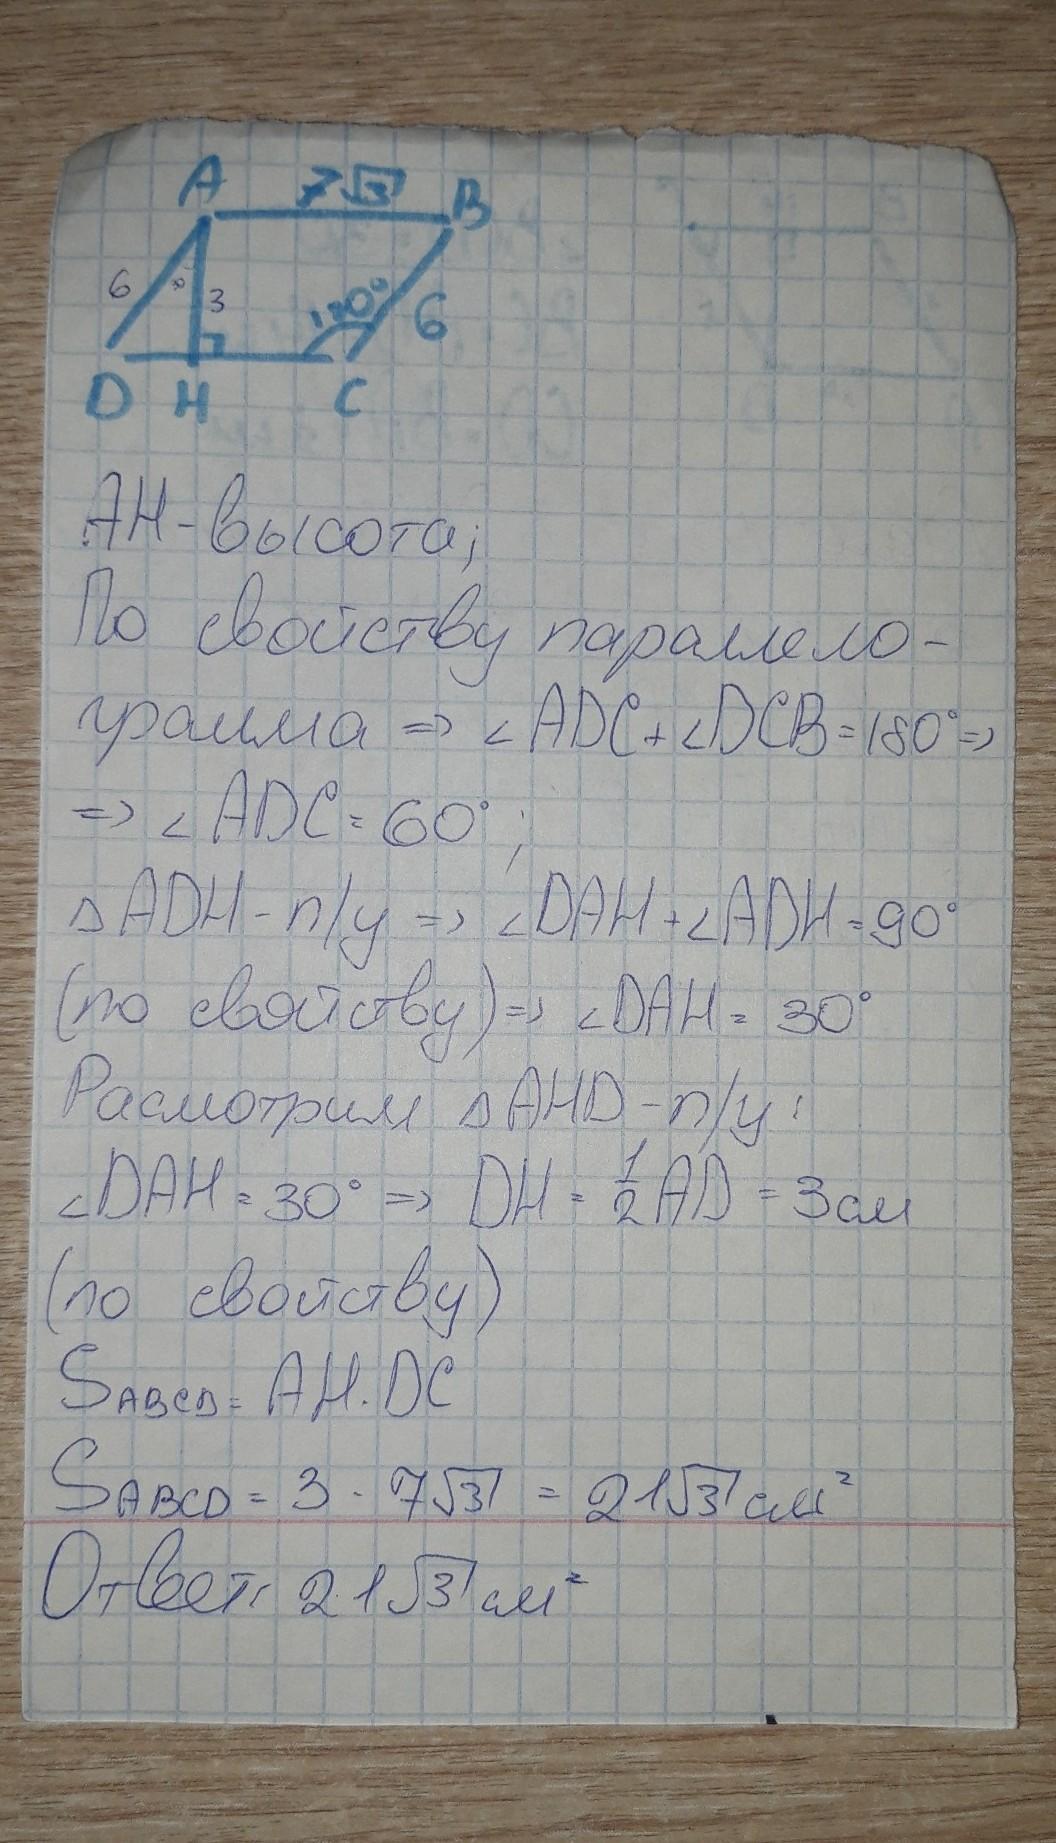 A 7√3 B
6 3 120° 6
D H C
AH - высота;
По свойству параллело-
грамма => ∠ADC + ∠DCB = 180° =>
=> ∠ADC = 60°;
△ADH - п/у => ∠DAH + ∠ADH = 90°
(по свойству) => ∠DAH = 30°
Расмотрим △AHD - п/у:
∠DAH = 30° => DH = 1/2 AD = 3 см
(по свойству)
SABCD = AH · DC
SABCD = 3 · 7√3 = 21√3 см²
Ответ: 21√3 см²